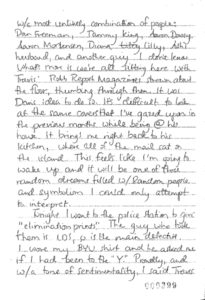 We most unlikely combination of people:
Dan Freeman, Tammy King, Aaron
Aaron Mortensen, Diana, Lilly,
husband, and another guy I don't know
what more is we're all sitting here with
Travis' Robb Report Magazines strewn about
the floor, thumbing through them. It was
Dan's idea to do so. It's difficult to look
at the same covers that I've gazed upon in
the previous months while being @ his
house. It brings me right back to his
kitchen, where all of the mail sat on
the island. This feels like I'm going to
wake up and it will be one of those
random dreams filled w/ random people
and symbolism I could only attempt
to interpret.
Tonight I went to the police station to give
"elimination prints". The guy who took
them is LDS, so is the main detective.
I wore my BYU shirt and he asked me
if I had been to the "Y". Proudly, and
w/ a tone of sentimentality, I said Travis